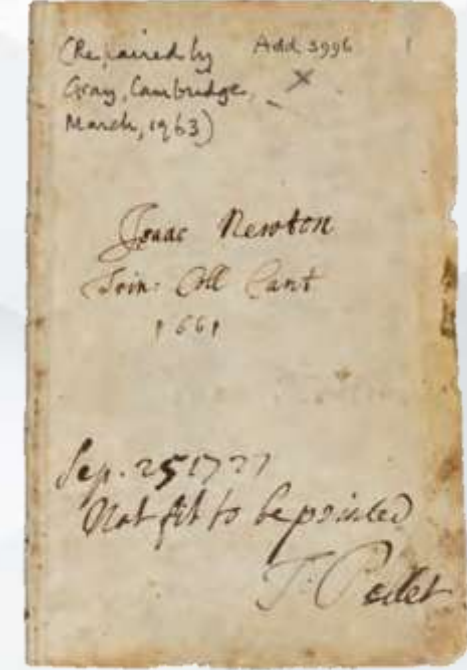 (Repaired by Add 3996 1
Gray, Cambridge, X
March, 1963)
Isaac Newton
Trin: Coll Cant
1661
Sep. 25 1727
Not fit to be printed
T. Pellet